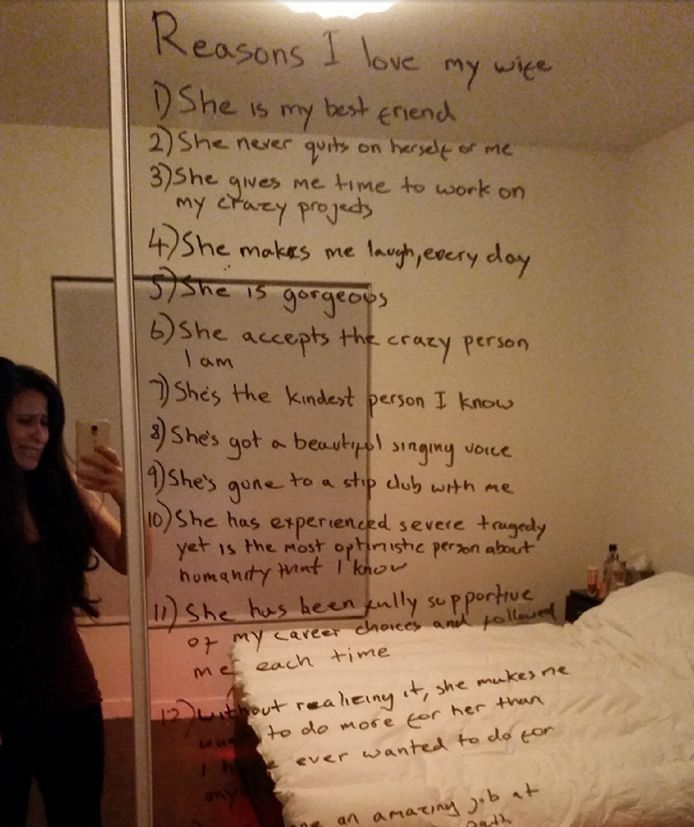 Reasons I love my wife
1) She is my best friend
2) She never quits on herself or me
3) She gives me time to work on
my crazy projects
4) She makes me laugh, every day
5) She is gorgeous
6) She accepts the crazy person
I am
7) She's the kindest person I know
8) She's got a beautiful singing voice
9) She's gone to a stip club with me
10) She has experienced severe tragedy
yet is the most optimistic person about
humanity that I know
11) She has been fully supportive
of my career choices and followed
me each time
12) Without realizing it, she makes me
to do more for her than
I ever wanted to do for
an amazing job at